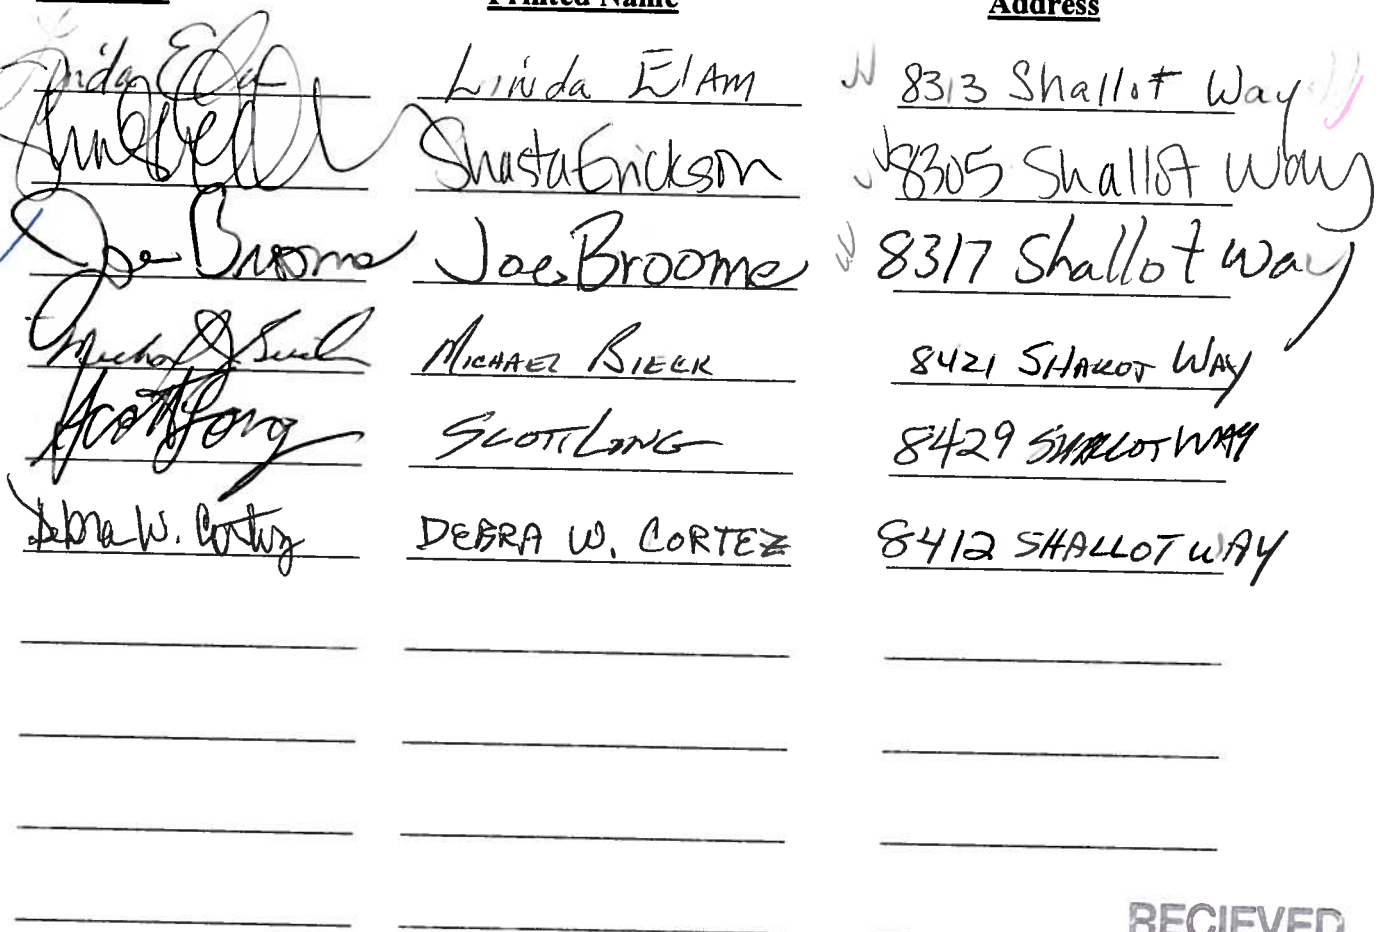 Printed Name Address
Linda Elam Linda Elam 8313 Shallot Way
Shasta Erickson 8305 Shallot Way
Joe Broome Joe Broome 8317 Shallot Way
MICHAEL BIECK 8421 SHALLOT WAY
Scott Long SCOTT LONG 8429 SHALLOT WAY
Debra W. Cortez DEBRA W. CORTEZ 8412 SHALLOT WAY
RECIEVED